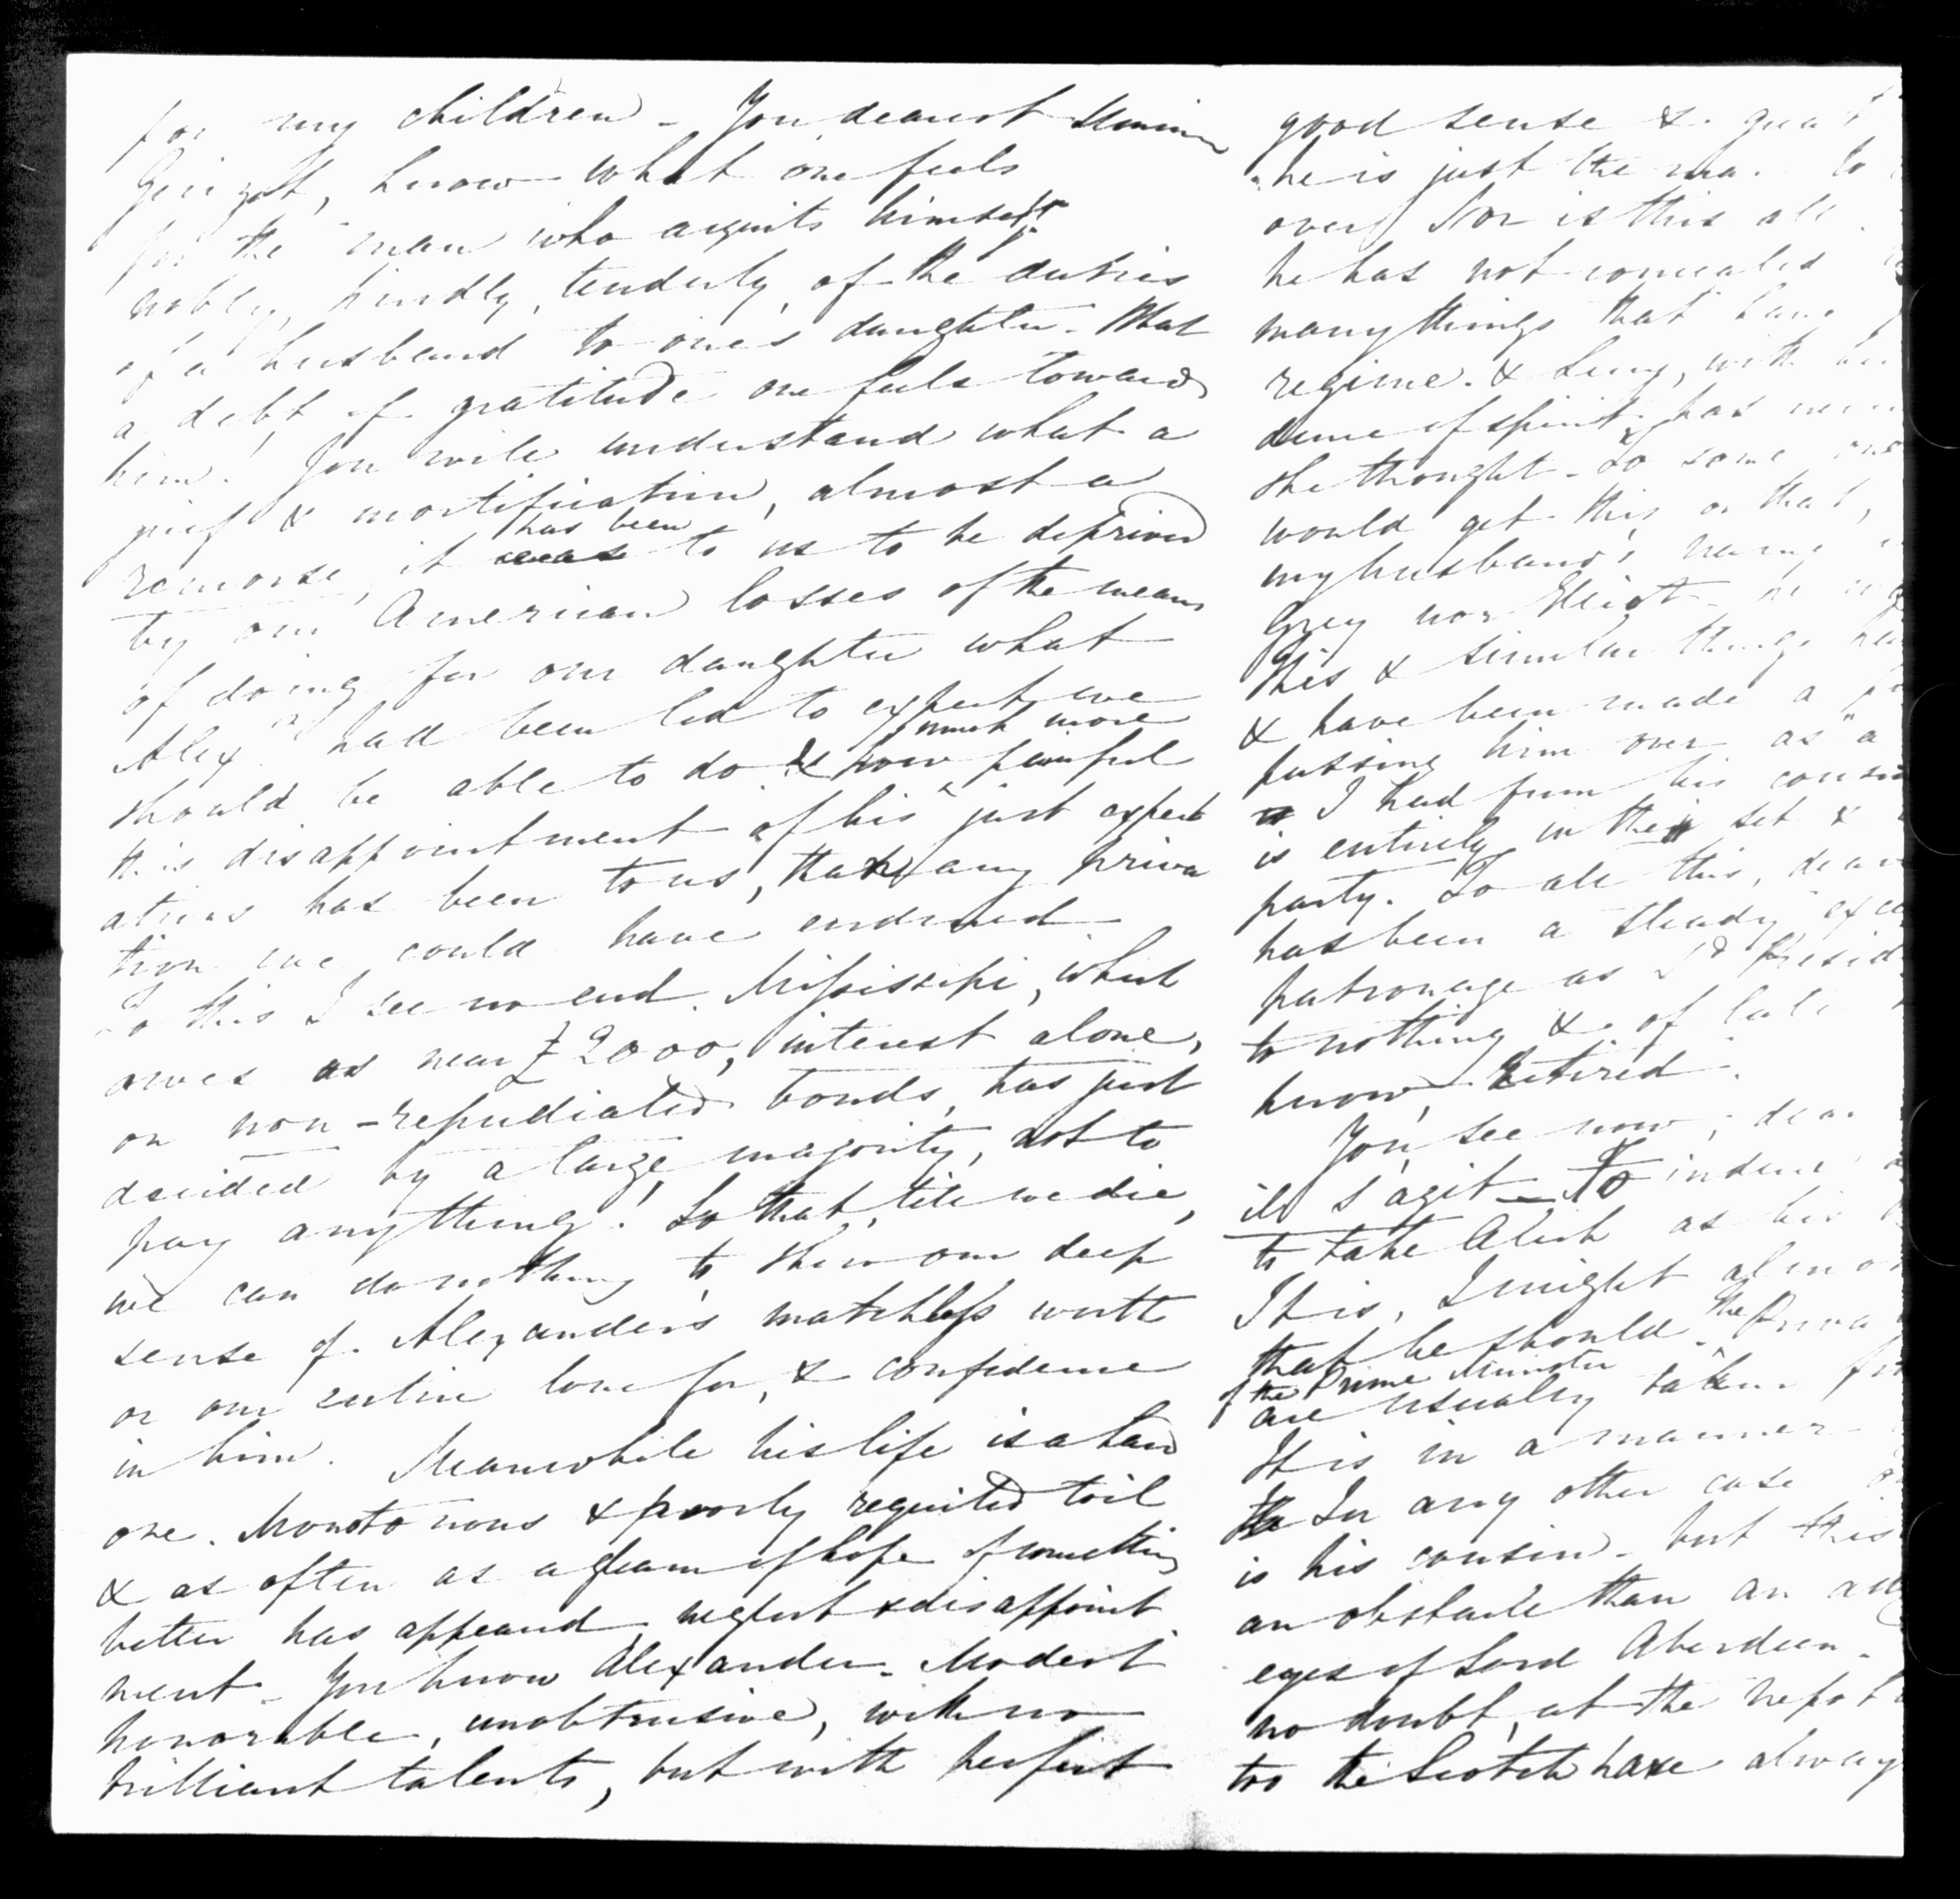 for my children - You dearest
Guizot, know what one feels
for the man who acquits himself
nobly, kindly, tenderly, of the duties
of a husband to one's daughter. What
a debt of gratitude one feels towards
him! You will understand what a
grief & mortification, almost a
has been
remorse, it was to us to be deprived
by our American losses of the means
of doing for our daughter what
Alexr had been led to expect we
much more
should be able to do & how painful
this disappointment of his just expect
ations has been to us, than any priva
tion we could have endured
To this I see no end. Missisipi, which
owes us near £2000, interest alone,
on non-repudiated bonds, has just
decided by a large majority, not to
pay anything! So that, till we die,
we can do nothing to show our deep
sense of Alexander's matchless worth
or our entire love for, & confidence
in him. Meanwhile his life is a hard
one. Monotonous & poorly requited toil
& as often as a gleam of hope of something
better has appeared, neglect & disappoint
ment - You know Alexander - Modest
honorable, unobtrusive, with no
brilliant talents, but with perfect
good sense & great
he is just the man to
over! Nor is this all
he has not concealed
many things that have
regime. & Lucy, with her
dence of spirit, has never
she thought - To some one
would get this or that,
my husband's name
Grey nor Eliot -
This & similar things
& have been made a
passing him over as "a
I had from his cousin
is entirely in their set &
party. To all this, dear
has been a steady
patronage as Ld Presid
to nothing & of late
know, retired.
You see now, dear
il s'agit - To induce
to take Aleck as his
It is, I might almost
that he should. The Priva
of the Prime Minister
are usually taken from
It is in a manner
In any other case
is his cousin - but this
an obstacle than an
eyes of Lord Aberdeen -
no doubt, at the
too the Scotch have always